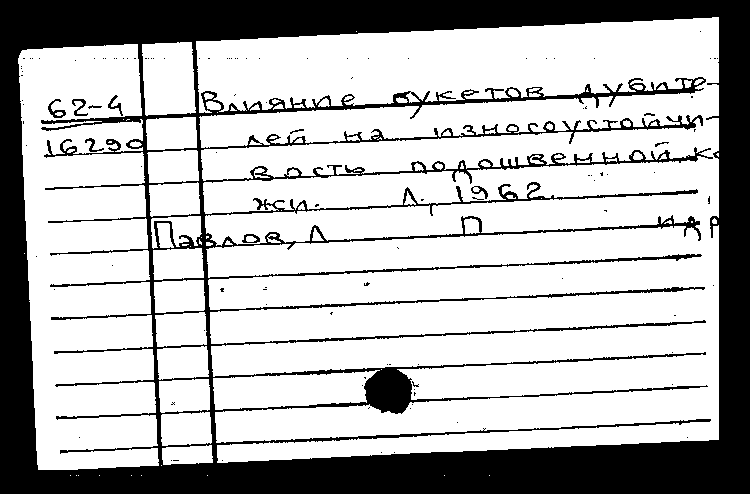 62-4 Влияние букетов дубите-
16290 лей на износоустойчи-
вость подошвенной ко
жи. Л., 1962.
Павлов, Л П и др